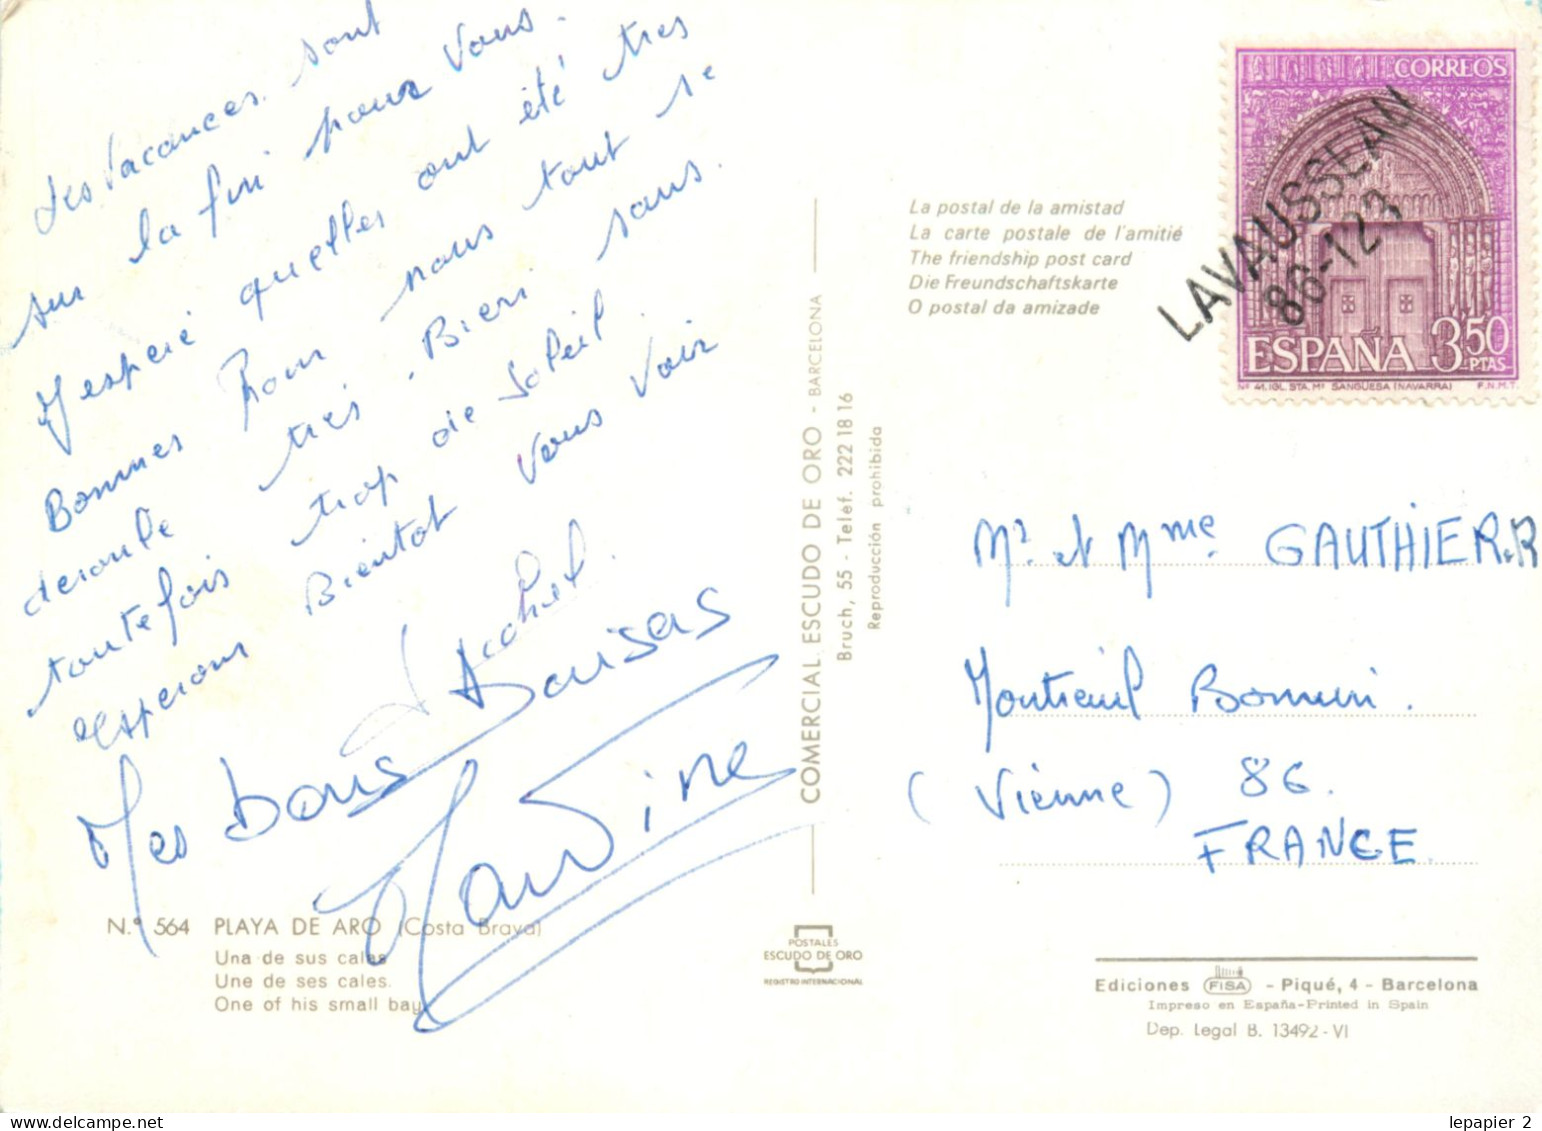 Les vacances sont
sur la fin pour vous.
J'espere quelles ont été tres
Bonnes Pour nous tout se
deroule tres Bien sans
toutefois trop de Soleil.
esperons Bientot vous voir
Mes Bons Baisers
Martine
La postal de la amistad
La carte postale de l'amitié
The friendship post card
Die Freundschaftskarte
O postal da amizade
CORREOS
ESPAÑA 3,50 PTAS
Nº 41. IGL. STA. Mª SANGÜESA (NAVARRA) F.N.M.T.
LAVAUSSEAU
86-123
COMERCIAL ESCUDO DE ORO - BARCELONA
Bruch, 55 - Telef. 222 18 16
Reproducción prohibida
Mr et Mme GAUTHIER.R
Montreuil Bonnin.
(Vienne) 86.
FRANCE.
N.º 564 PLAYA DE ARO (Costa Brava)
Una de sus calas
Une de ses cales.
One of his small bay
POSTALES
ESCUDO DE ORO
REGISTRO INTERNACIONAL
Ediciones FISA - Piqué, 4 - Barcelona
Impreso en España-Printed in Spain
Dep. Legal B. 13492-VI
lepapier 2